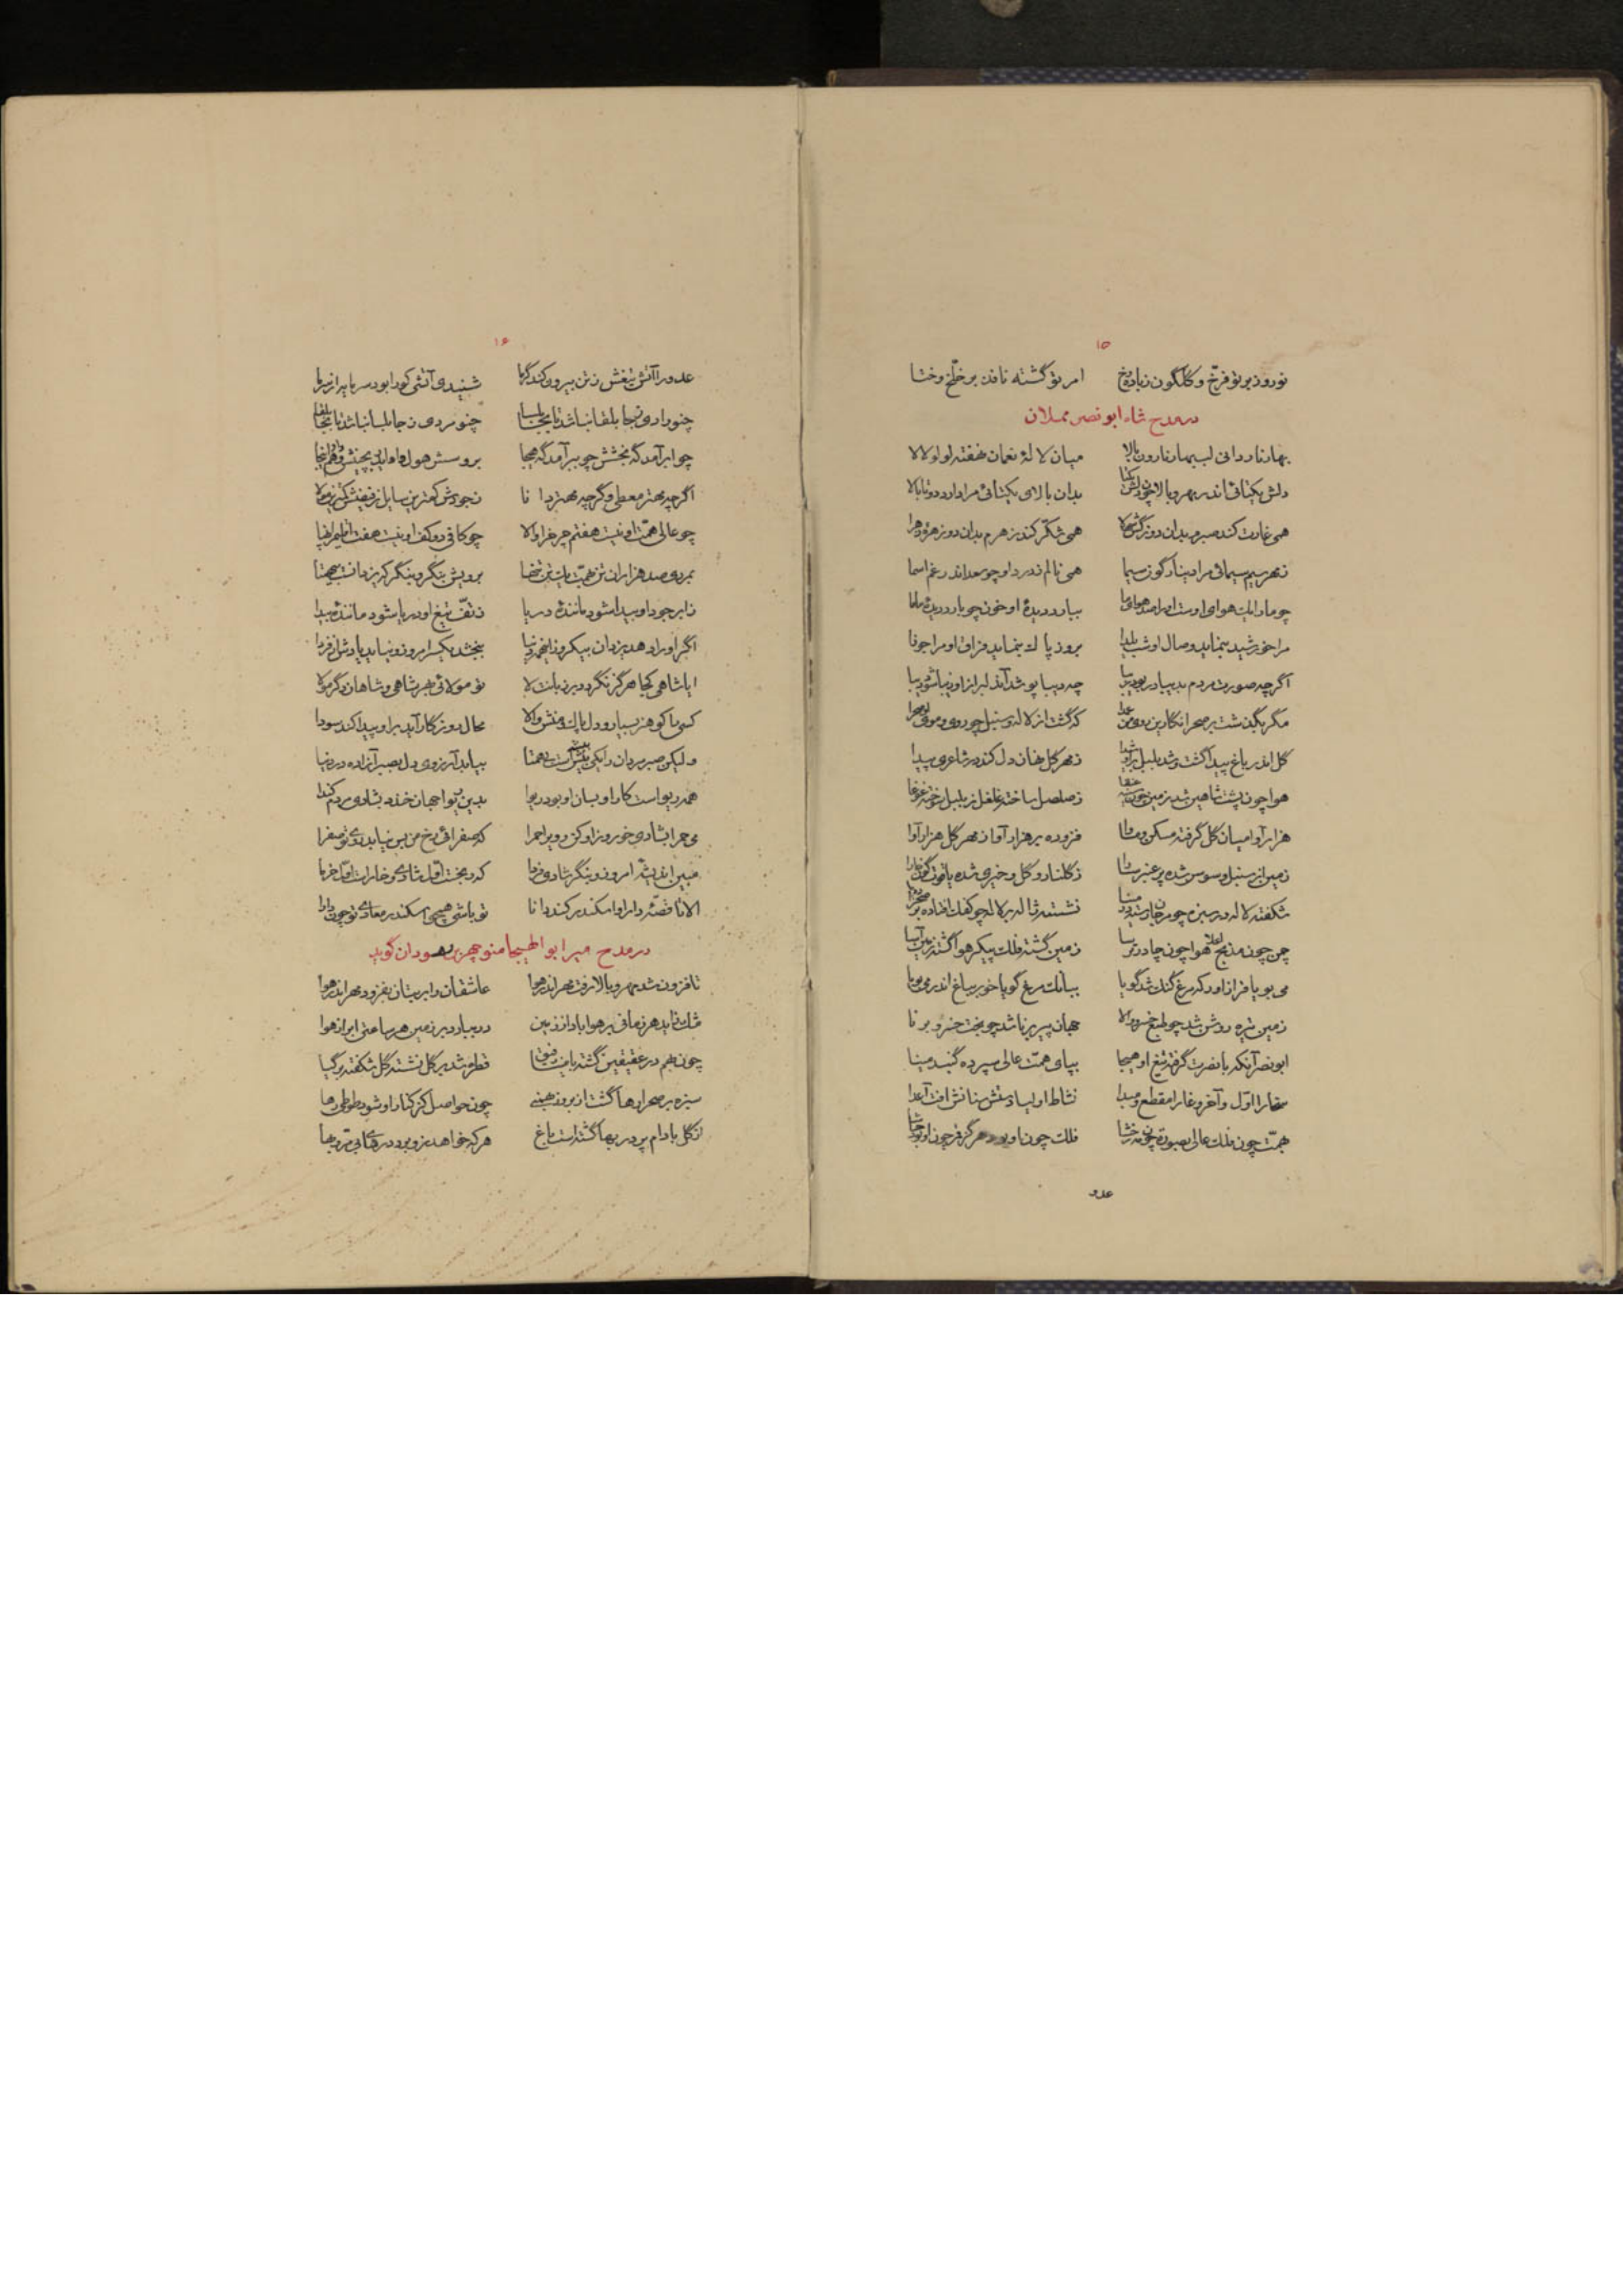 ۱۵
نوروز بر تو فرخ و گلگون ز باده رخ امر تو گشته نافذ بر خلخ و ختا
در مدح شاه ابو نصر مملان
بهار نارد دانی لب بهار نارون بالا میان لالهٔ نعمان نهفته لولو لالا
دلش یکتائی اندر مهر و بالا چون دلش یکتا بدان بالای یکتائی مرا دارد دوتا بالا
همی غارت کند صبرم بدان دو نرگس شهلا همی شکر کند زهرم بدان دو زهرهٔ زهرا
ز مهر سیم سیمائی مرا دینارگون سیما همی نالم ز درد او چو سعد اندر غم اسما
چو ما را یک هوای اوست او را صد هوای ما ببارد دیدهٔ او خون چو بارد دیدهٔ ما ما
مرا خورشید بنماید وصال او شب یلدا بروز پاک بنماید فراق او مرا جوزا
اگر چه صورت مردم بدیبا در بود زیبا چه دیبا پوشد آن دلبر از او زیبا شود دیبا
مگر بگذشت بر صحرا نگارین روی من عذرا که گشت از لاله و سنبل چو روی و موی او صحرا
گل اندر باغ پیدا گشت و شد بلبل بر او شیدا ز مهر گل نهان دل کند در شاعری پیدا
هوا چون پشت شاهین شد زمین چون سینه عنقا ز صلصل ساخته غلغل ز بلبل خاسته غوغا
هزار آوا میان گل گرفته مسکن و ماوا فزوده بر هزار آوا ز مهر گل هزار آوا
زمین از سنبل و سوسن شده پر عنبر سارا ز گلنار و گل و خیری شده یاقوت گون خارا
شکفته لاله در سبزه چو مرجان رسته در مینا نشسته ژاله بر لاله چو کفک افتاده بر صهبا
چمن چون مذبح اعلا هوا چون چادر ترسا زمین گشته فلک پیکر هوا گشته زمین آسا
می بویا فراز آور که مرغ گنگ شد گویا ببانگ مرغ گویا خور بباغ اندر می بویا
زمین تیره روشن شد چو طبع خسرو والا جهان پیر برنا شد چو بخت خسرو برنا
ابونصر آنکه با نصرت گرفته تیغ او هیجا بپای همت عالی سپرده گنبد مینا
سخا را اول و آخر وغا را مقطع و مبدا نشاط اولیا دستش سنانش آفت اعدا
همت چون فلک عالی بصورت چون مه رخشا فلک چون او بود هرگز قمر چون او بود حاشا
عدو
۱۶
عدو را آتش تیغش ز تن بیرون کند گرما شنیدی آتشی کو را بود سرمایه از سرما
چنو رادی ز جابلقا نباشد تا بجابلسا چنو مردی ز جابلسا نباشد تا بجابلقا
چو ابر آمد گه بخشش چو ببر آمد گه هیجا
اگر چه مهتر معطی و گر چه مهتر دانا ز جودش کمترین سایل ز فیضش کمترین مولا
چو عالی همت او نیست هفتم چرخ خضرا والا چو کافی دو کف او نیست هفت اقلیم را پهنا
بمردی صد هزاران تن بهمت یک تن تنها برویش بنگر و بنگر که یزدانست بی همتا
ز ابر جود او بیدا شود مانندهٔ دریا ز تف تیغ او دریا شود مانندهٔ بیدا
اگر او را دهد یزدان بیکروز آنچه در دنیا ببخشد یکسر امروز و نیاید یادش از فردا
ایا شاهی کجا هرگز نگردد بر زبانت لا تو مولائی بهر شاهی و شاهان دگر مولا
کسی را کو هنر بسیار و دل پاک و منش والا محال روزگار آید بر او پیدا کند سودا
ولیکن صبر مردان را یکی بیشی است بی همتا بیابد آرزوی دل بصبر آزاده در دنیا
بدین نیوا جهان خندد بشادی مردم کندا
می حمرا بشادی خور و زاو کن روی را حمرا که صفرائی رخ من بس نیاید روی تو صفرا
مبین اندیشهٔ امروز و بنگر شادی فردا که در بخت اول شادی و خار است اول خرما
الا تا قصهٔ دارا و اسکندر کند دانا تو باشی همچو اسکندر معادی تو چون دارا
در مدح میر ابوالهیجا منوچهر بن وهسودان گوید
تا فزون شد مهر و بالا رفت مهر اندر هوا عاشقان را بر بتان بفزود مهر اندر هوا
مشک ساید هر زمانی بر هوا باد از زمین در ببارد بر زمین هر ساعتی ابر از هوا
چون بهم در عقیقین گشته با مینا رفیق قطره شد بر گل نشسته گل شکفته بر گیا
سبزه بر صحرا رها گشت از بروز بهمنی چون حواصل کز کنار او شود طوطی رها
از گل بادام پر در بها گشته است باغ هر که خواهد نزد او بود در های بی تر و بها